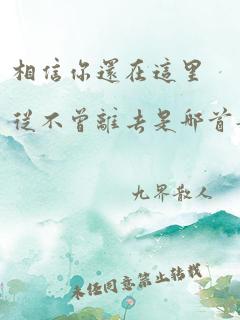 相信你還在這里
從不曾離去是那首
九界散人
未经同意禁止转载